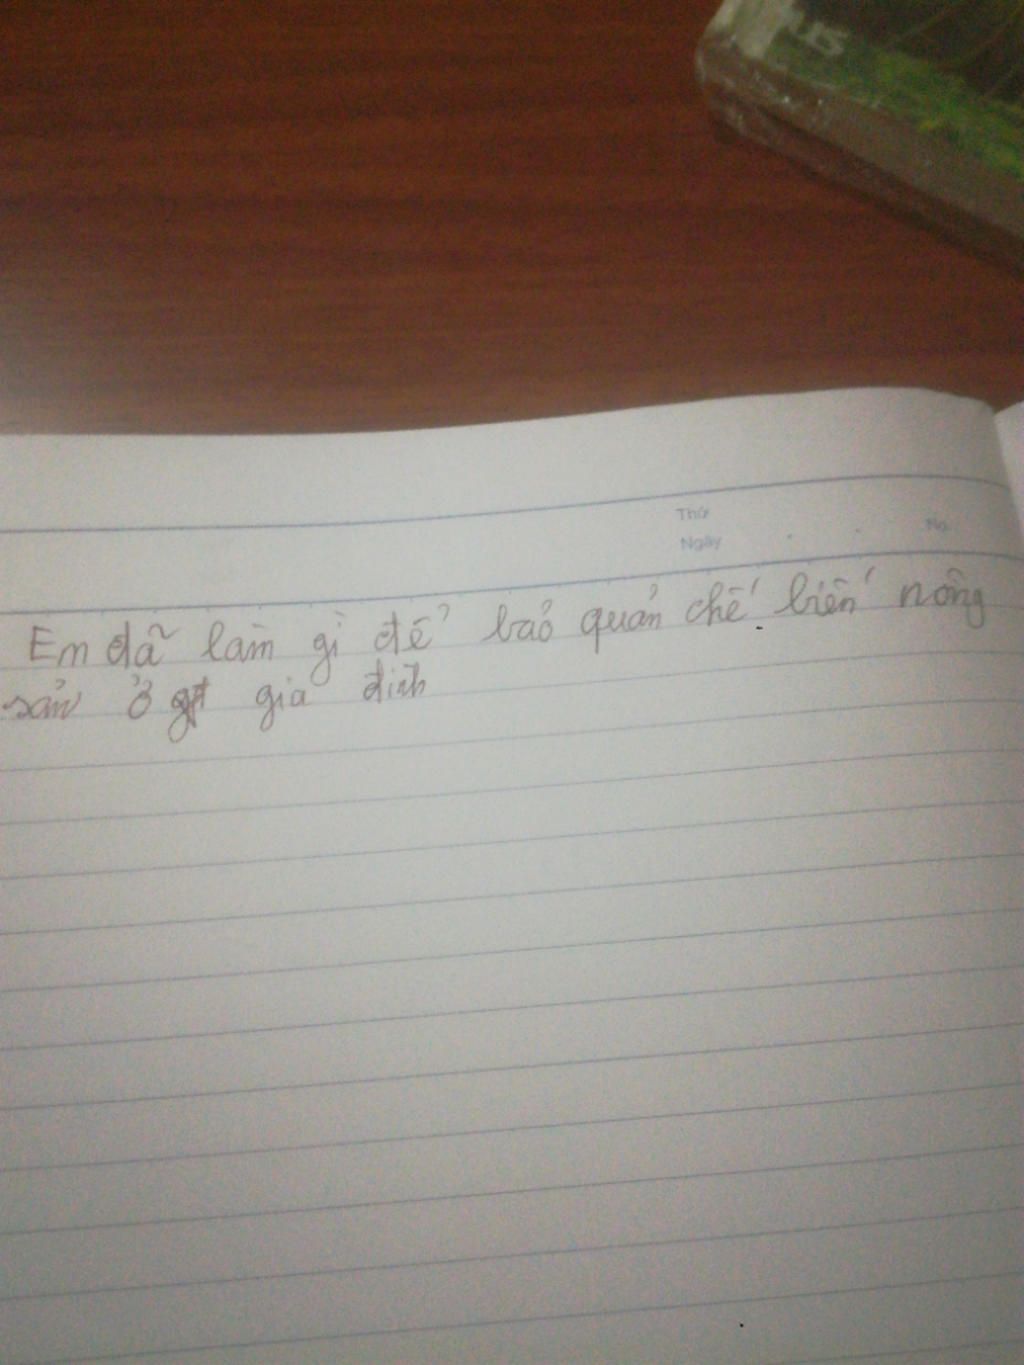 us
Thứ
Ngày
No.
Em đã làm gì để bảo quản chế biến nông
sản ở gia đình